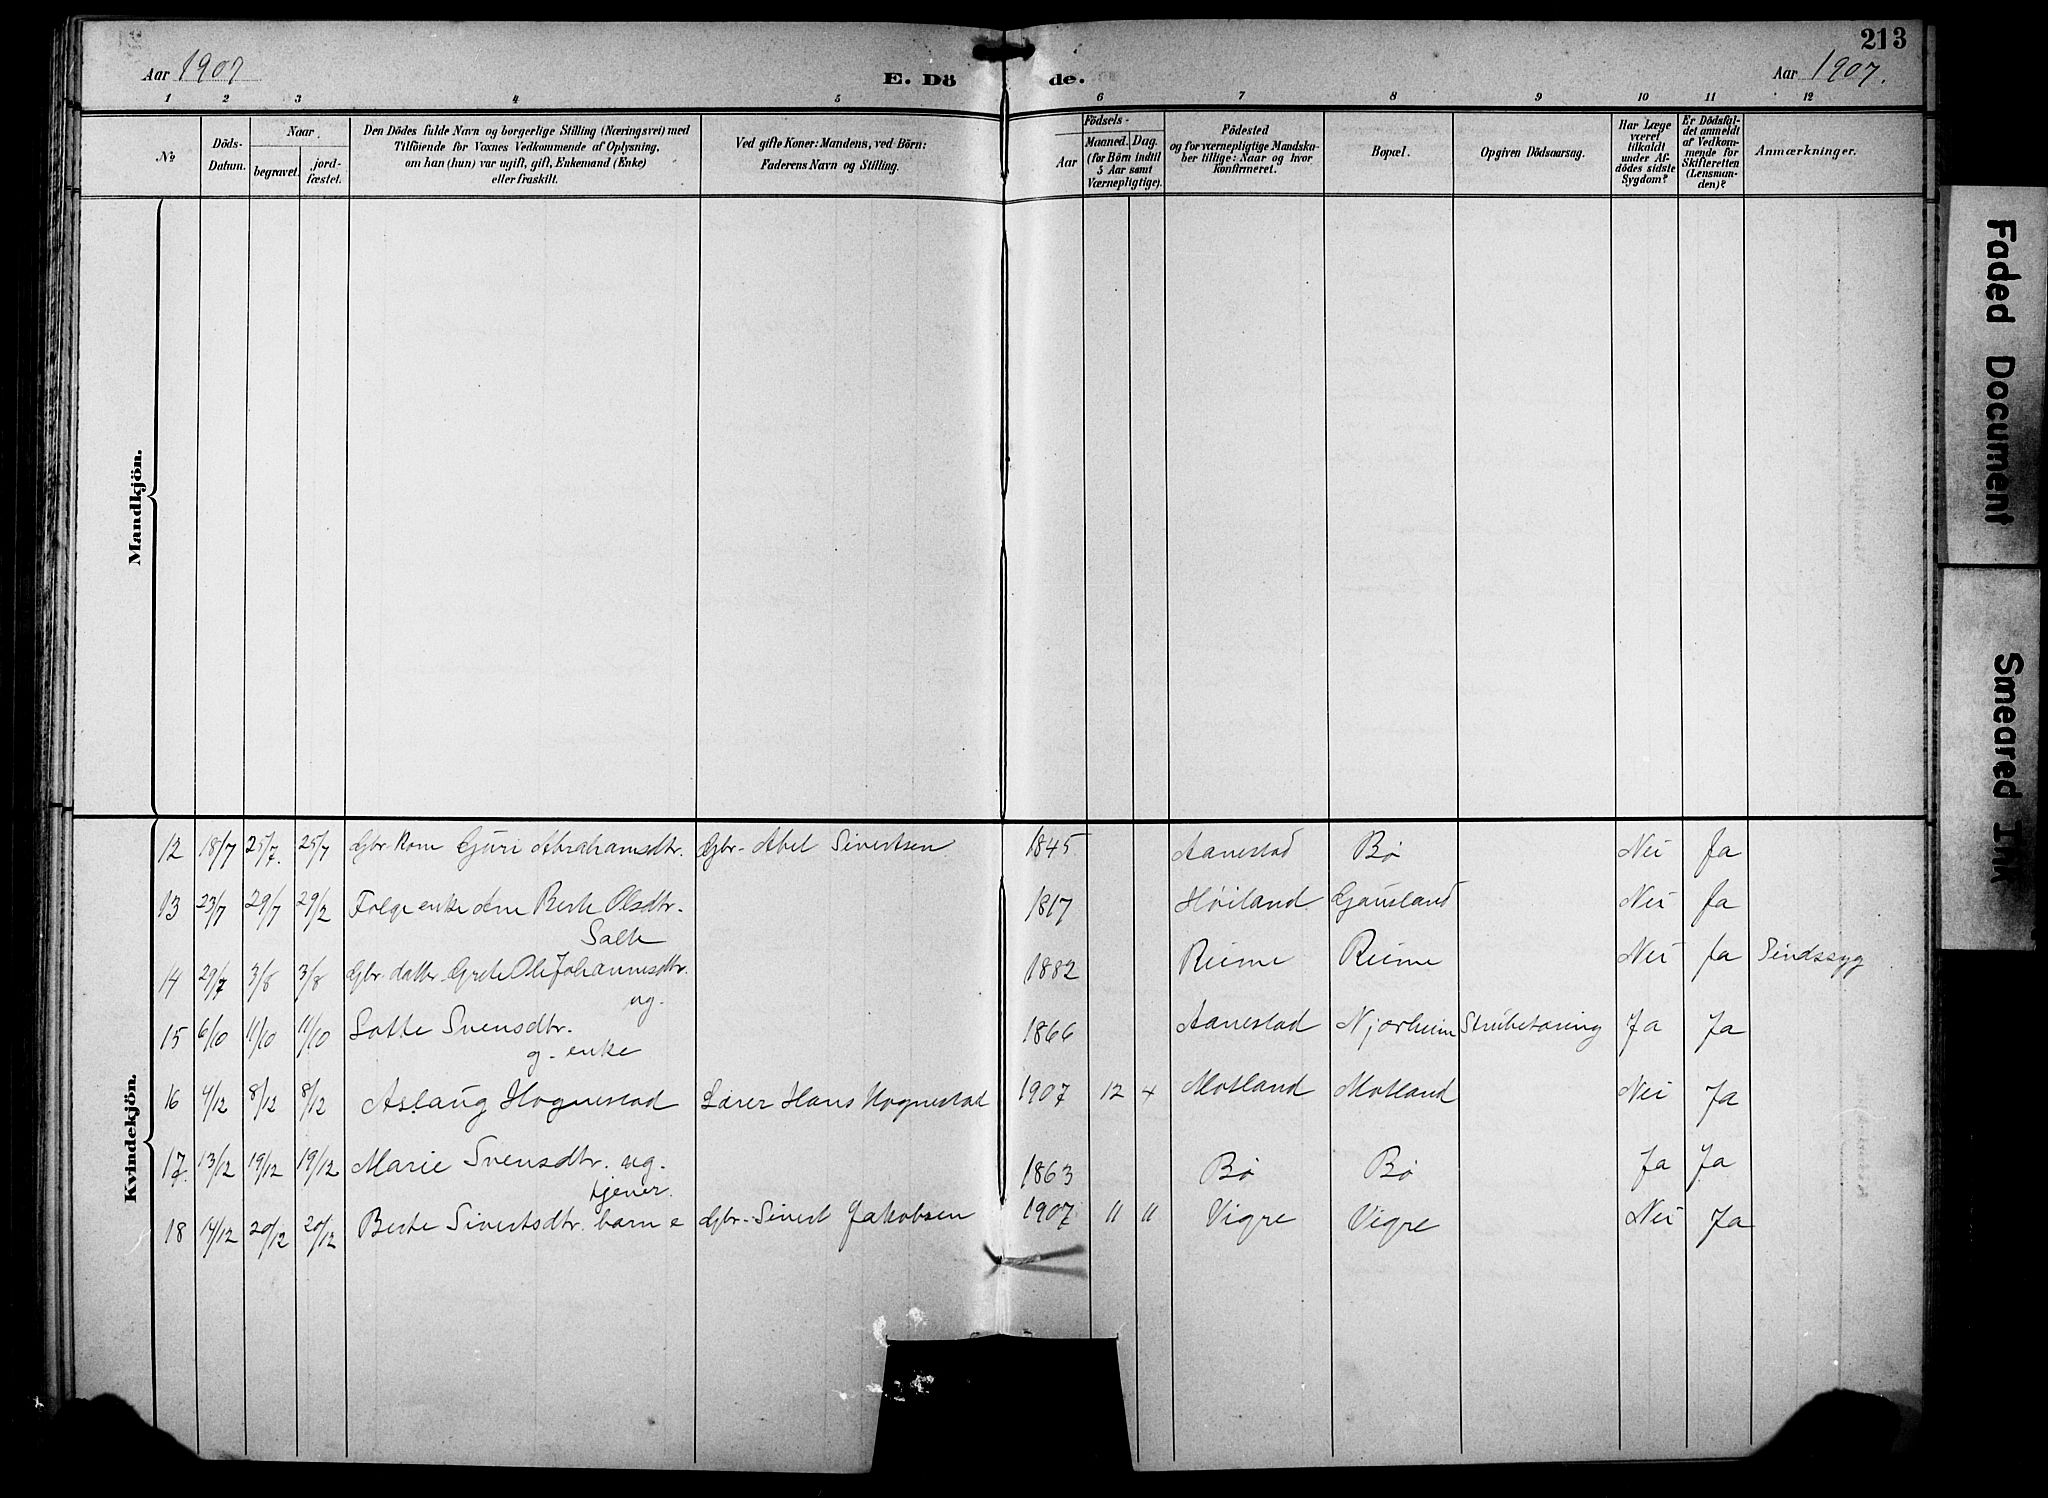 213
Aar 1907
E. Döde.
Aar 1907.
1 2 3 4 5 6 7 8 9 10 11 12
No
Döds-Datum.
Naar
begravet.
jord-fæstet.
Den Dödes fulde Navn og borgerlige Stilling (Næringsvei) med
Tilföiende for Voxnes Vedkommende af Oplysning,
om han (hun) var ugift, gift, Enkemand (Enke)
eller fraskilt.
Ved gifte Koner: Mandens, ved Börn:
Faderens Navn og Stilling.
Födsels-
Aar
Maaned. Dag.
(for Börn indtil
5 Aar samt
Værnepligtige).
Födested
og for værnepligtige Mandska-
ber tillige: Naar og hvor
konfirmeret.
Bopæl.
Opgiven Dödsaarsag.
Har Læge
været
tilkaldt
under Af-
dödes sidste
Sygdom?
Er Dödsfal-
det anmeldt
af Vedkom-
mende for
Skifteretten
(Lensman-
den)?
Anmærkninger.
Mandkjön.
Kvindekjön.
12 18/7 25/7. 25/7 Gbr. Kone Guri Abrahamsdtr. Gbr. Abel Sivertsen 1845 Aanestad Bø Nei Ja
13 23/7 29/7 29/7 Folgeenke dme Berte Olsdtr. 1817 Høiland Gausland Nei Ja
Salte
14 29/7 3/8 3/8 Gbr. datter Grete Oli Johannesdtr. 1882 Reime Reime Nei Ja Sindssyg
ug.
15 6/10 11/10 11/10 Lotte Svensdtr. 1866 Aanestad Njærheim Strubetæring Ja Ja
g. enke
16 4/12 8/12 8/12 Aslaug Hognestad Lærer Hans Hognestad 1907 12 4 Motland Motland Nei Ja
17 13/12 19/12 19/12 Marie Svensdtr. ug. 1863 Bø Bø Ja Ja
tjener.
18 14/12 20/12 20/12 Berte Sivertsdtr. barn e Gbr. Sivert Jakobsen 1907 " " Vigre Vigre Nei Ja
Faded Document
Smeared Ink